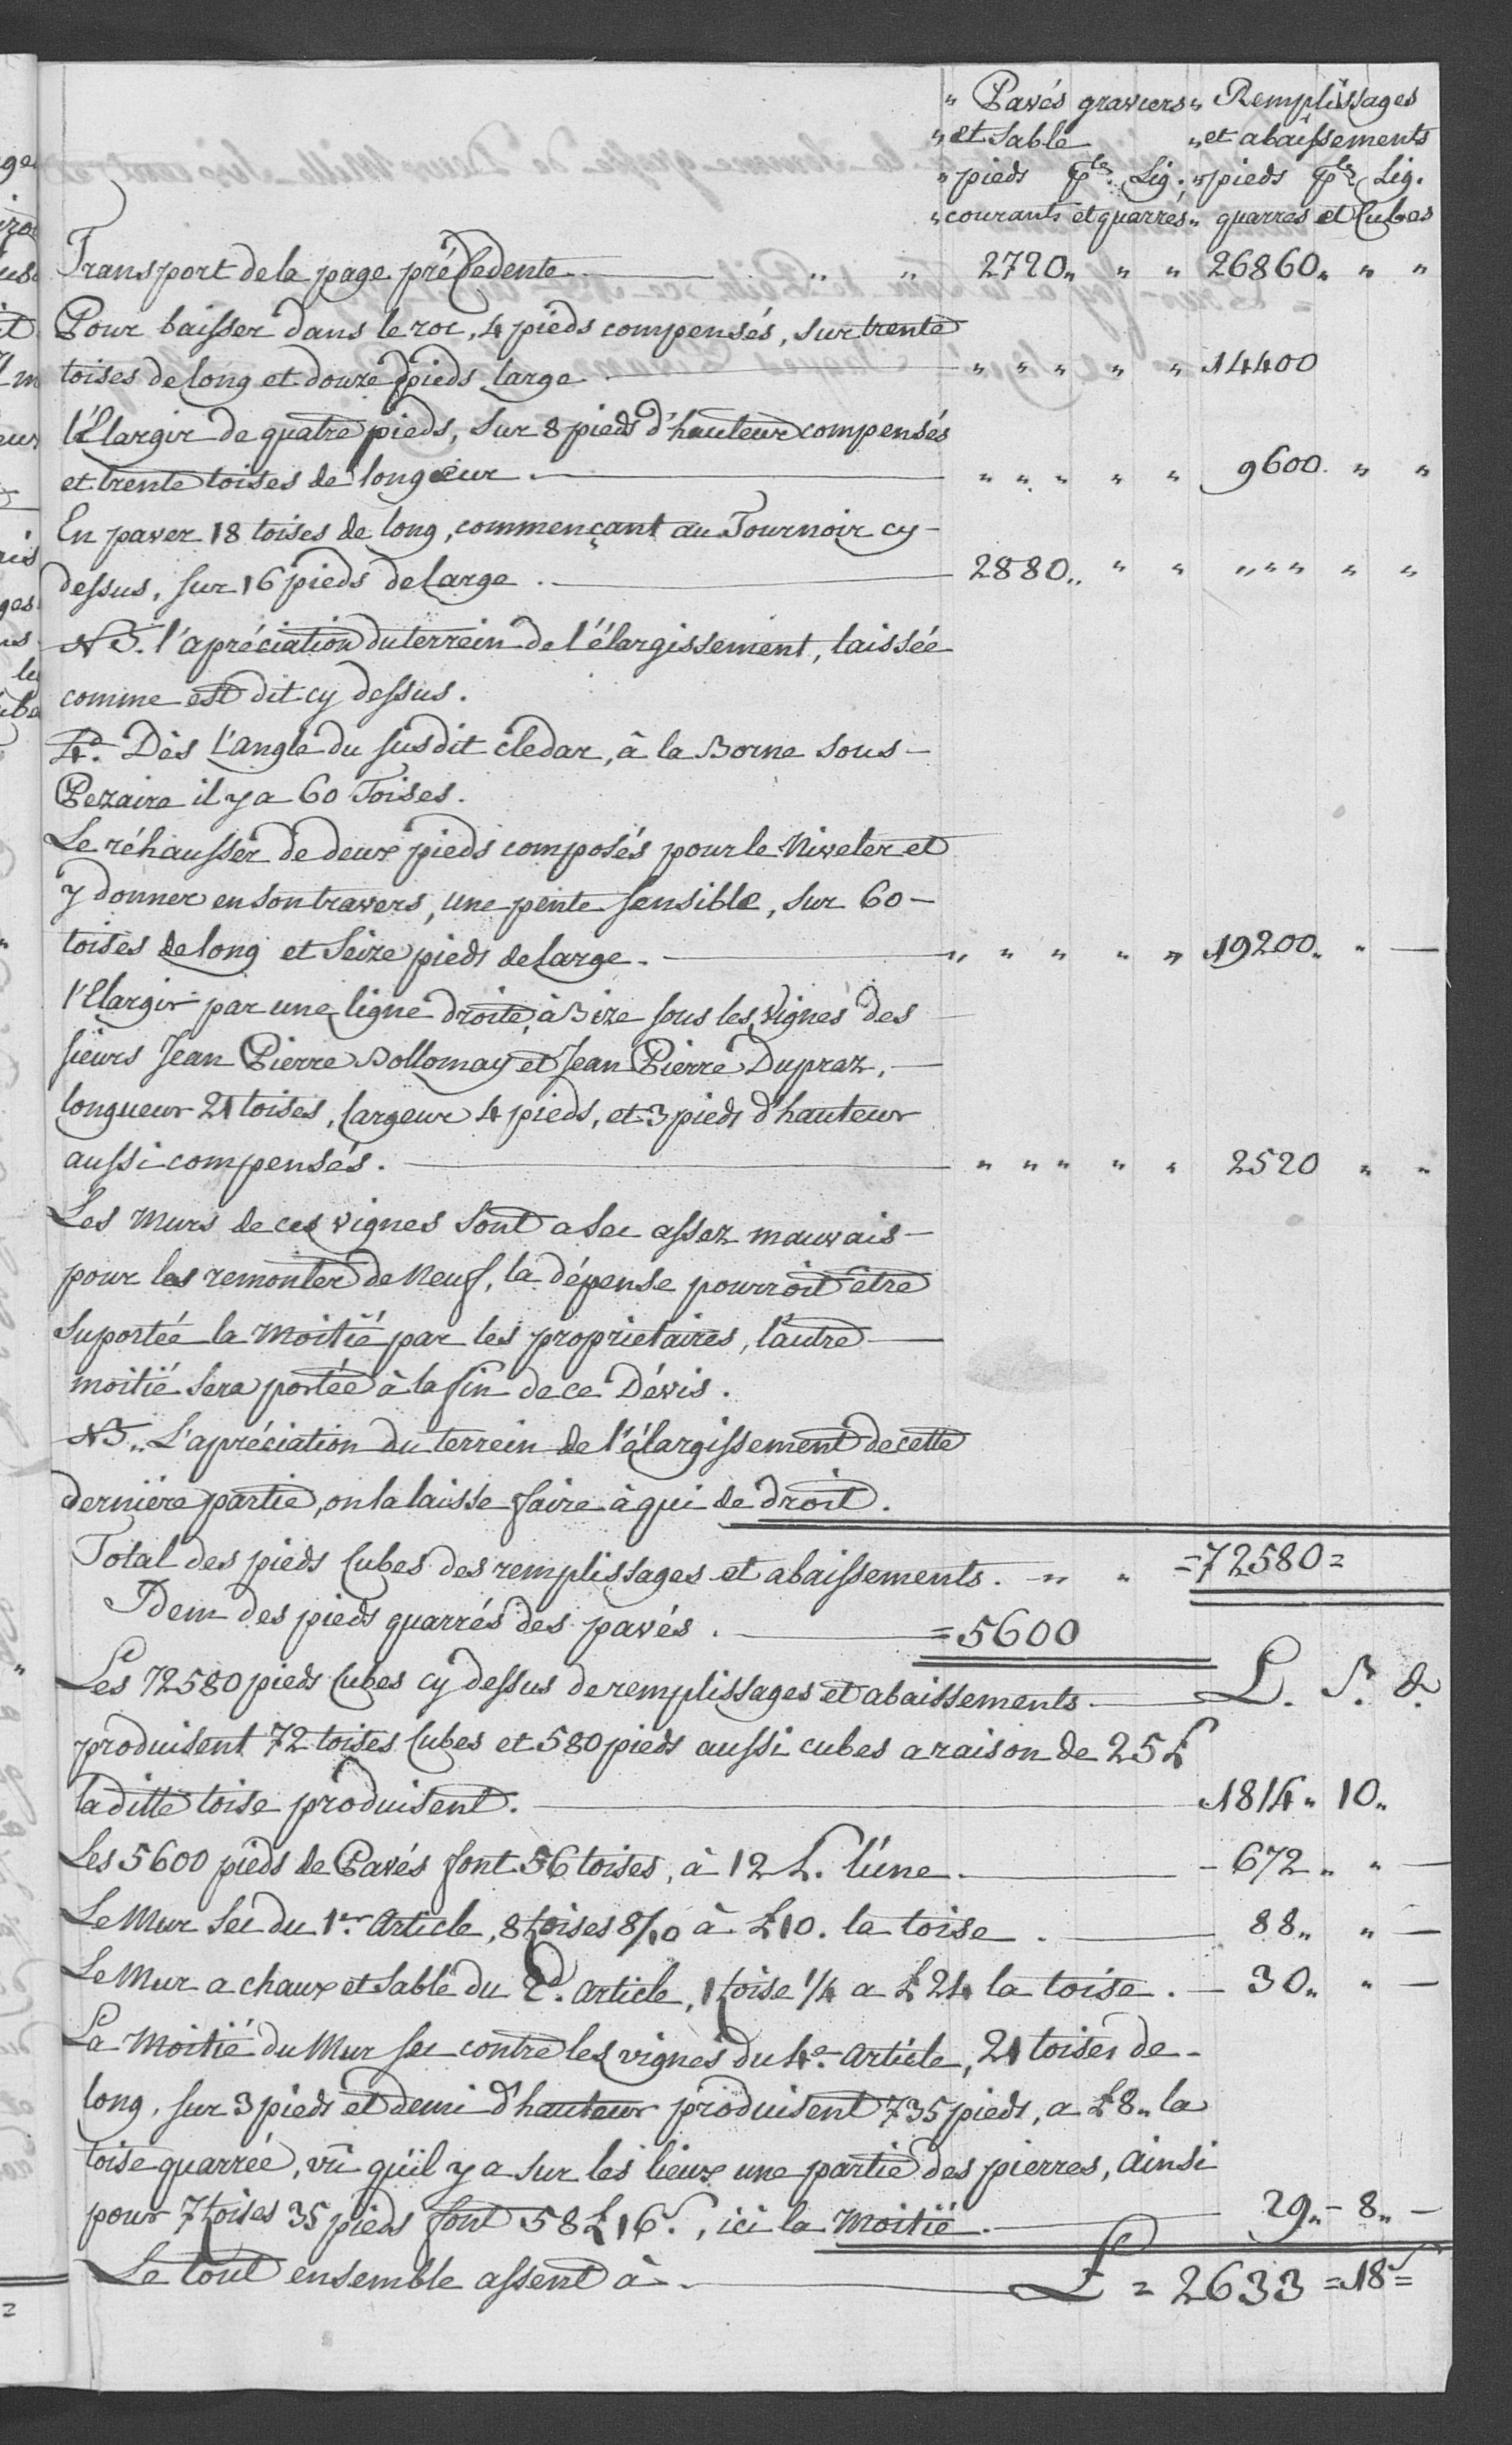 „ Pavés graviers „ Remplissages
„ et Sable „ et abaissements
„ pieds pces. Lig. „ pieds pces Lig.
„ courants et quarrés „ quarres et Cubes
Transport de la page précedente „ „ 2720 „ „ „ 26860 „ „ „
Pour baisser dans le roc, 4 pieds compensés, sur trente
toises de long et douze pieds large „ „ „ „ „ 14400
l'Elargir de quatre pieds, sur 8 pieds d'hauteur compensés
et trente toises de longueur. „ „ „ „ „ 9600. „ „
En paver 18 toises de long, commençant au Tournoir cy-
dessus, sur 16 pieds de large. 2880 „ „ „ „ „ „ „ „
NB. l'apréciation du terrein de l'élargissement, laissée
comme est dit cy dessus.
4°. Dès l'angle du susdit cledar, à la Borne sous-
Pezaire il y a 60 Toises.
Le réhausser de deux pieds composés pour le Niveler et
y donner en son travers, une pente sensible, sur 60-
toises de long et Seize pieds de large. „ „ „ „ „ 19200 „ „ —
l'Elargir par une ligne droite, à Bize sous les vignes des
sieurs Jean Pierre Bollomay et Jean Pierre Dupraz, —
longueur 21 toises, largeur 4 pieds, et 3 pieds d'hauteur
aussi compensés. „ „ „ „ „ 2520 „ „
Les Murs de ces vignes sont a sec assez mauvais —
pour les remonter de Neuf, la dépense pourroit être
suportée la moitié par les proprietaires, l'autre —
moitié sera portée à la fin de ce Dévis.
NB. L'apréciation du terrein de l'élargissement de cette
derniére partie, on la laisse faire à qui de droit.
Total des pieds Cubes des remplissages et abaissements. „ „ =72580=
Idem des pieds quarrés des pavés. =5600
Les 72580 pieds Cubes cy dessus de remplissages et abaissements — L. S. d.
produisent 72 toises Cubes et 580 pieds aussi cubes a raison de 25 £
la ditte toise produisent. 1814 „ 10 „
Les 5600 pieds de Pavés font 56 toises, à 12 L. l'une — 672 „ „ —
Le Mur sec du 1er. Article, 8 toises 8/10 à £ 10. la toise. — 88 „ „ —
Le Mur a chaux et sable du 2d. article, 1 toise 1/4 a £ 24 la toise. — 30 „ „ —
La Moitié du Mur sec contre les vignes du 4e. Article, 21 toises de-
long, sur 3 pieds et demi d'hauteur produisent 735 pieds, a £ 8 „ la
toise quarrée, vû qu'il y a sur les lieux une partie des pierres, ainsi
pour 7 toises 35 pieds font 58 £ 16 s., ici la Moitié. 29 „ - 8 „ —
Le tout ensemble assent à — £ = 2633 = 18 =